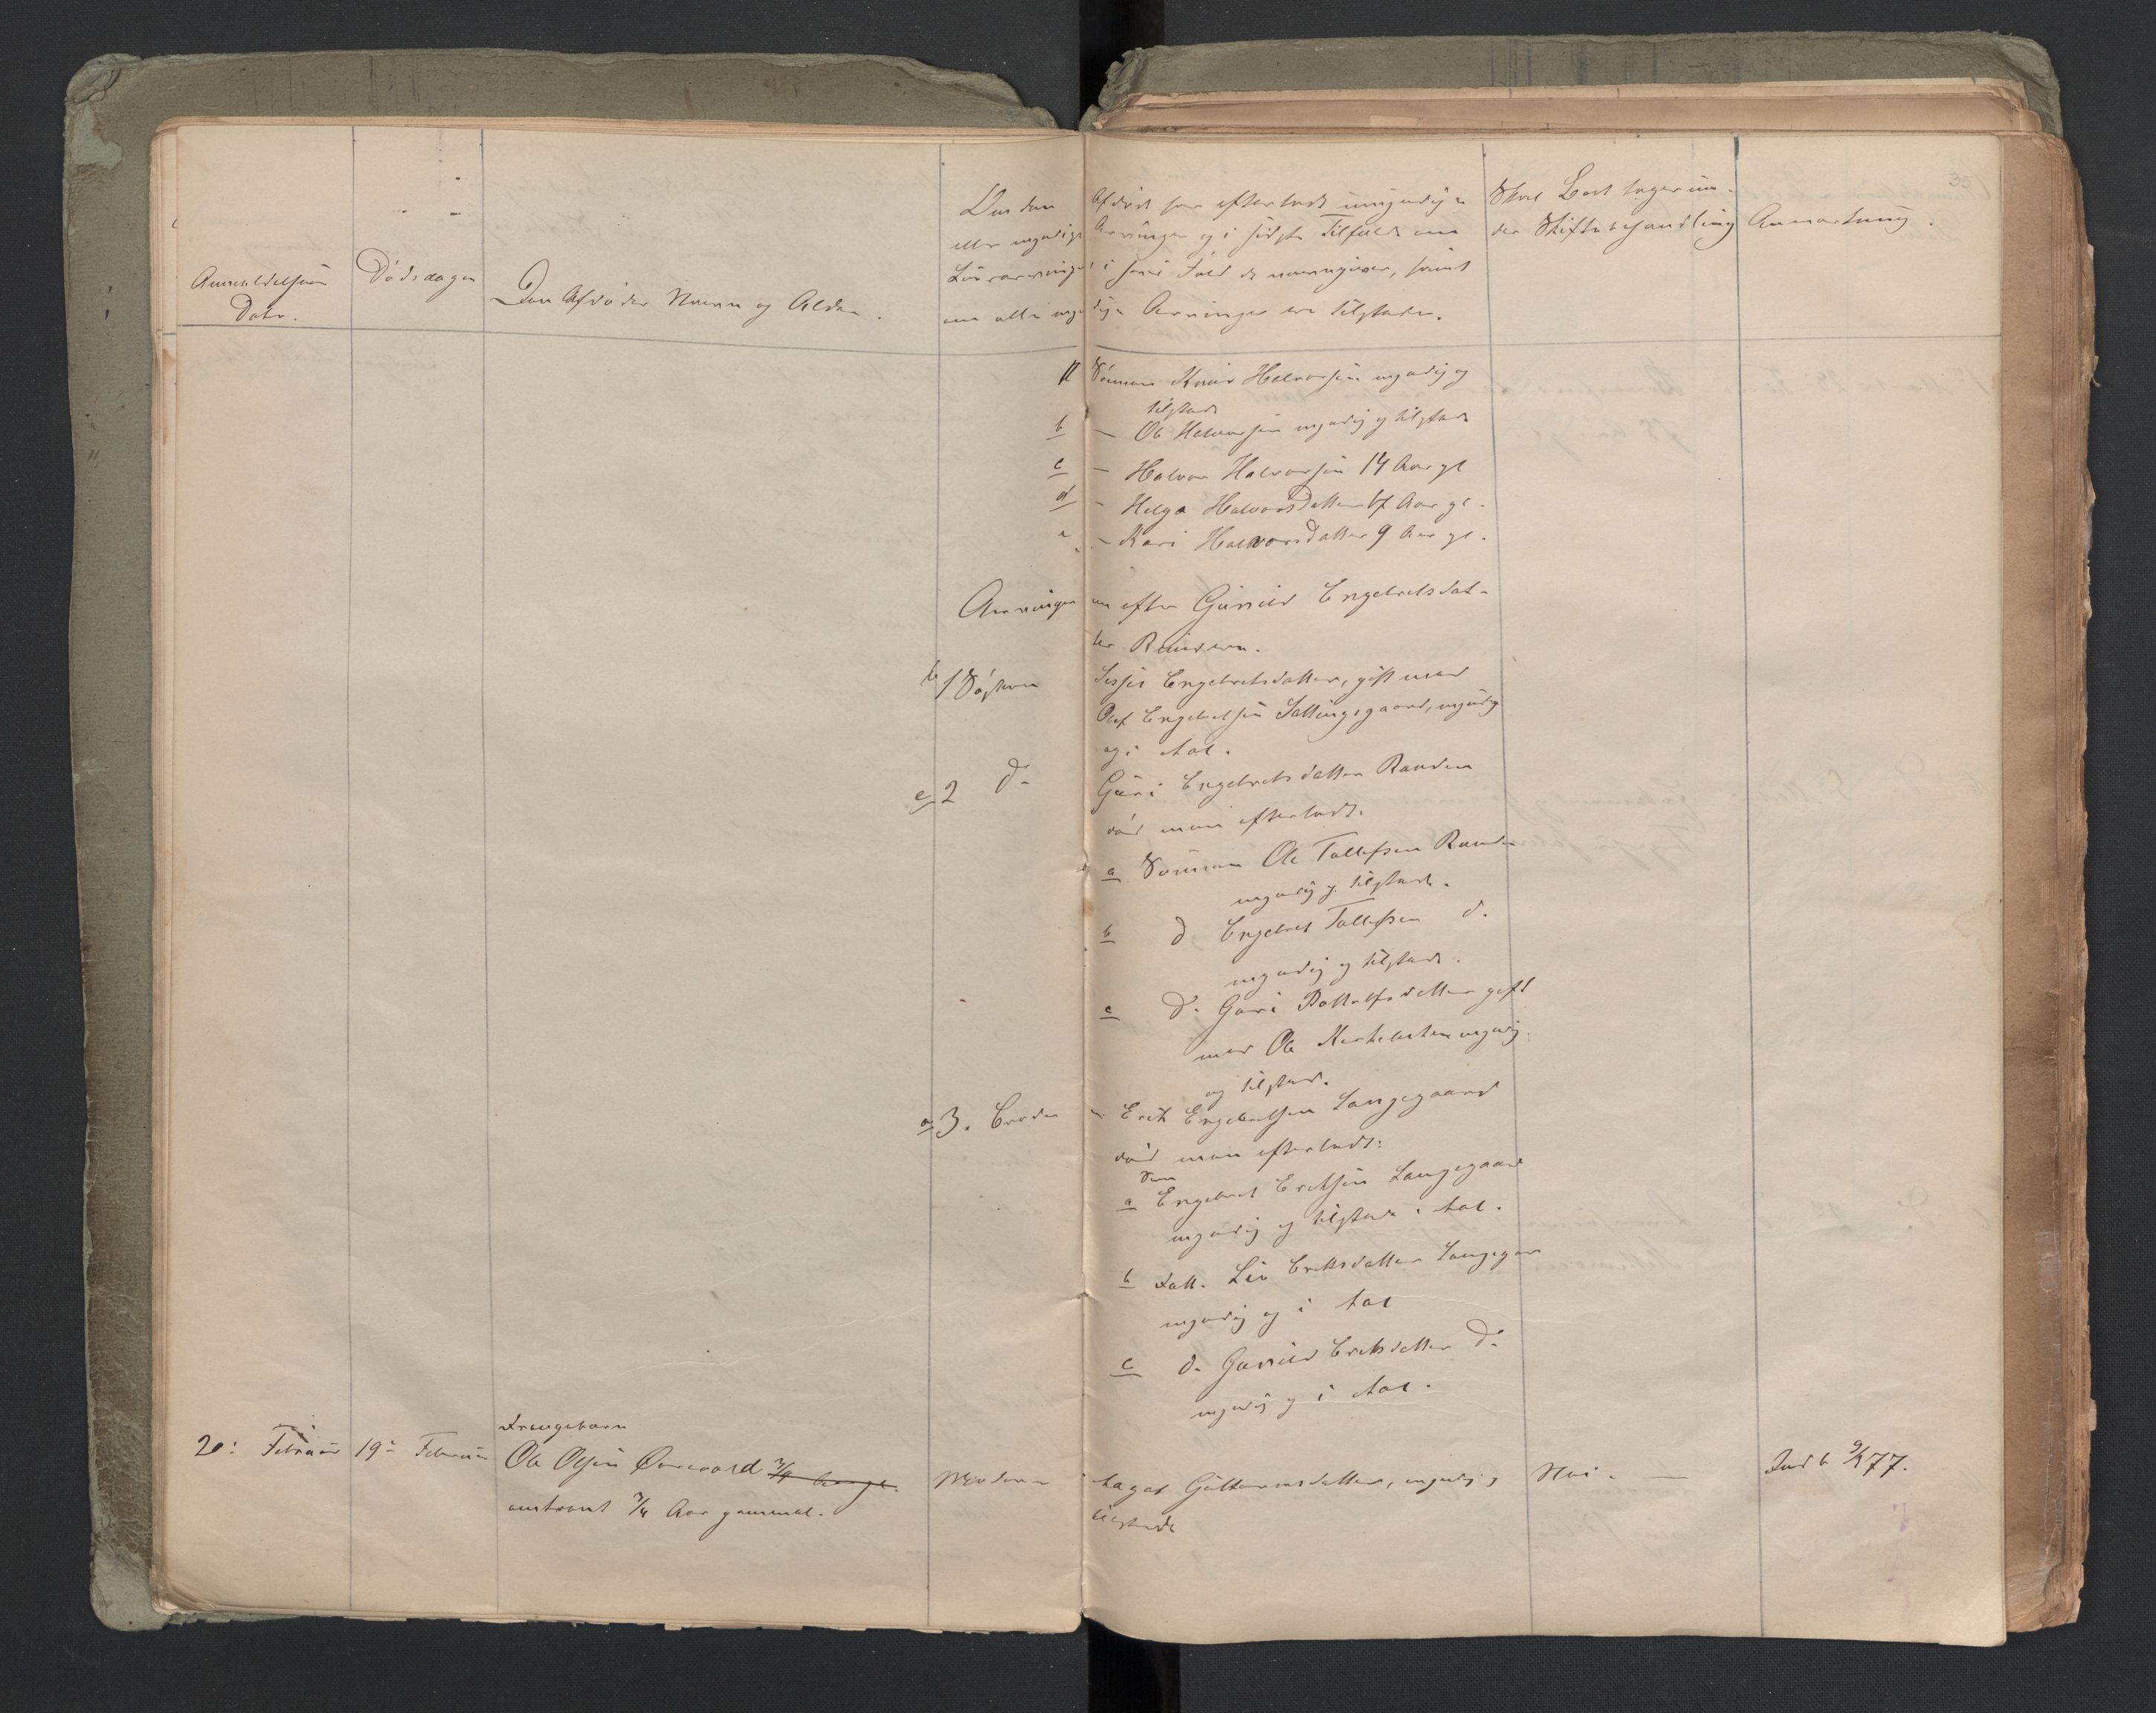 35
Anmeldelsens
Dato.
Dødsdagen
Den Afdødes Navn og Alder.
Om den Afdøde har efterladt umyndige
eller myndige Arvinger og i sidste Tilfælde om
Livsarvinger i saa Fald de navngives, samt
om alle myndige Arvinger ere tilstede.
Skal Boet tages un-
der Skiftebehandling
Anmærkning.
a Sønnen Knud Halvorsen myndig og
tilstede
b — Ole Halvorsen myndig og tilstede
c — Halvor Halvorsen 14 Aar gl
d — Helga Halvorsdatter 17 Aar gl.
e — Kari Halvorsdatter 9 Aar gl.
Arvingerne efter Gunild Engebretsdat-
ter
b 1 Søsteren Sissel Engebretsdatter, gift med
Olef Engebretsen myndig
og i Aal.
c 2 do Guri Engebretsdatter Randen
død men efterladt.
a Sønnen Ole Tollefsen Randen
myndig og tilstede.
b d Engebret Tollefsen d.
myndig og tilstede.
c d. Guri datter gift
med Ole myndig
og tilstede.
a 3. Broder Erik Engebretsen Langegaard
død men efterladt:
Søn
a Engebret Eriksen Langegaard
myndig og tilstede i Aal.
b Datt. Liv Eriksdatter Langegaar
myndig og i Aal
c d. Gunild Eriksdatter do
myndig og i Aal.
20: Februar 19de Februar
Drengebarn
Ole Olsen 3/4 Aar gl.
omtrent 3/4 Aar gammel.
Moderen Aagot Guttormsdatter, myndig og
tilstede
Nei. —
Indb 9/3 77.